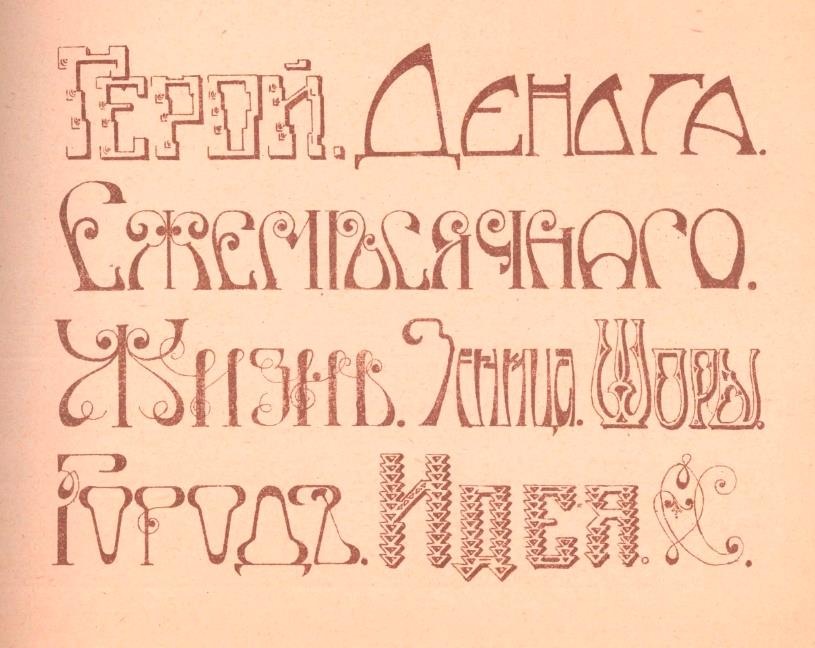 Герой. Деньга.
Ежемѣсячнаго.
Жизнь. Зеница. Шоры.
Городъ. Идея.